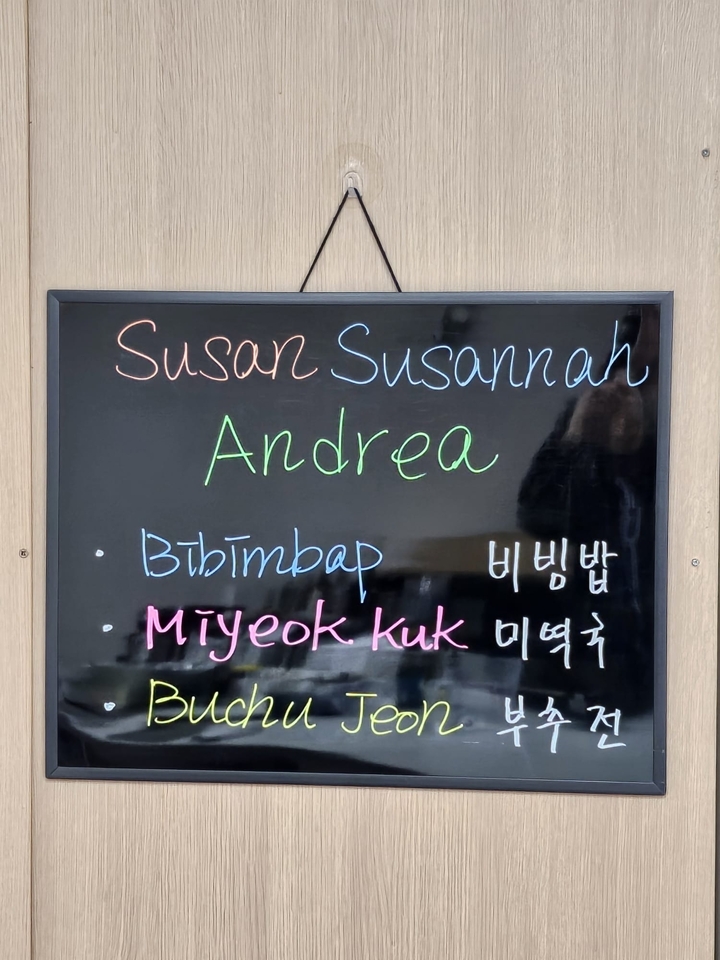 Susan Susannah
Andrea
• Bibimbap 비빔밥
• Miyeok Kuk 미역국
• Buchu Jeon 부추전